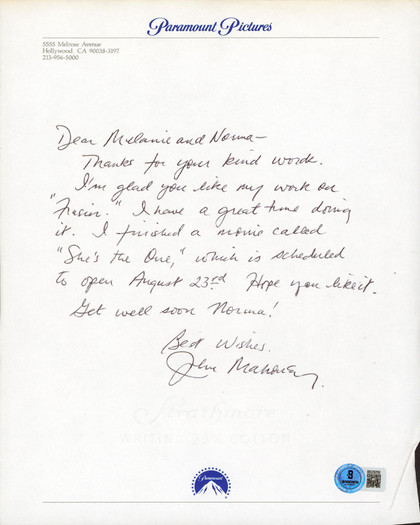 Paramount Pictures
5555 Melrose Avenue
Hollywood, CA 90038-3197
213-956-5000
Dear Melanie and Norma—
Thanks for your kind words.
I'm glad you like my work on
"Frasier." I have a great time doing
it. I finished a movie called
"She's the One," which is scheduled
to open August 23rd. Hope you like it.
Get well soon Norma!
Best Wishes,
John Mahoney
Strathmore
WRITING
Paramount